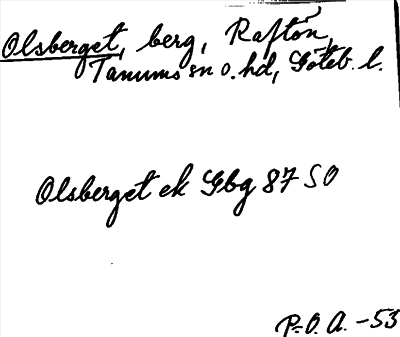 Olsberget, berg, Raftön,
Tanums sn o. hd, Göteb. l.
Olsberget ek Gbg 87 SO
P.O.A. -53